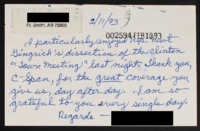 Ft. Smith, AR 72903
2/11/93
002594 FEB 1993
I particularly enjoyed Rep. Newt
Gingrich's dissection of the Clinton
"Town Meeting" last night. Thank you,
C-Span, for the great coverage you
give us, day after day. I am so
grateful to you every single day!
Regards